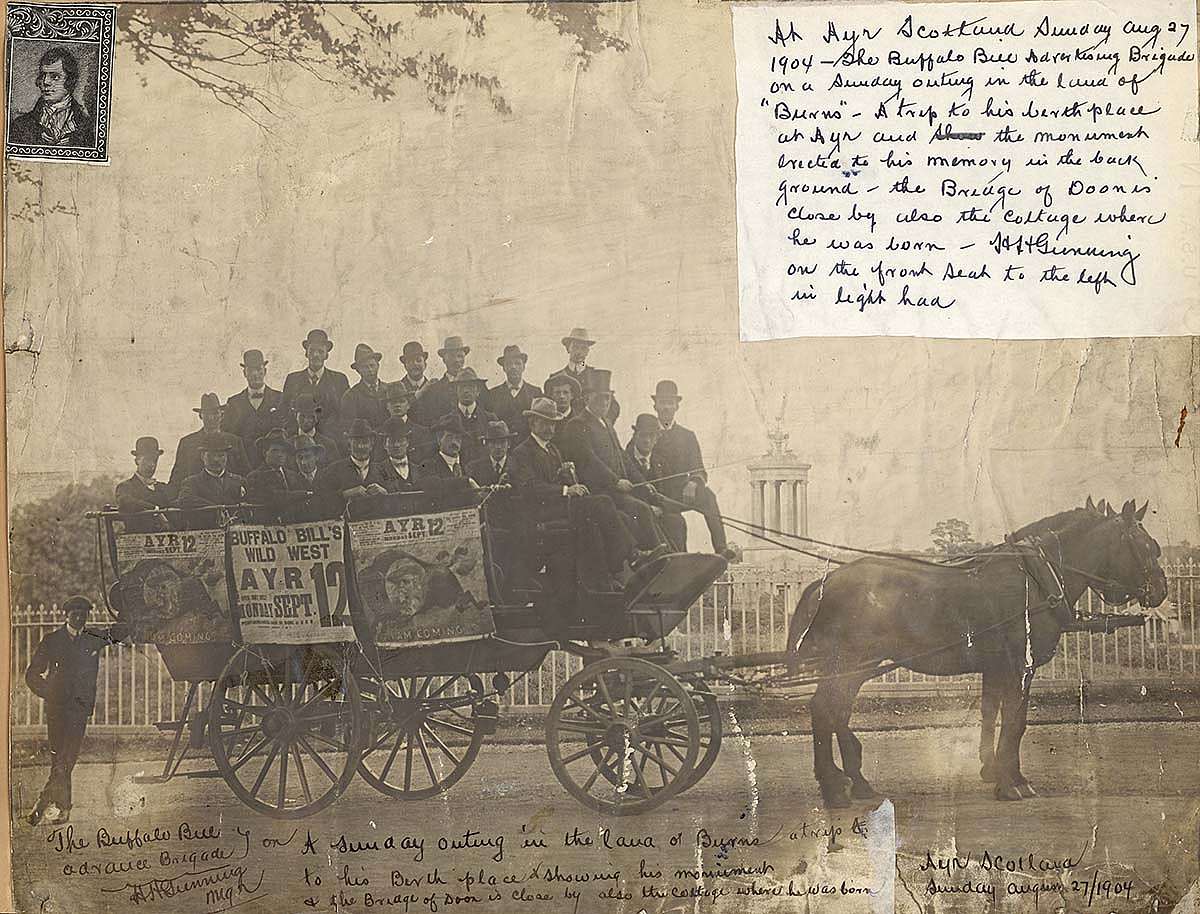 At Ayr Scotland Sunday Aug 27
1904 – The Buffalo Bill Advertising Brigade
on a Sunday outing in the land of
"Burns" – A trip to his berth place
at Ayr and the monument
erected to his memory in the back
ground – the Bridge of Doon is
close by also the Cottage where
he was born – H H Gunning
on the front seat to the left
in light had
AYR 12
MONDAY SEPT.
I AM COMING
BUFFALO BILL'S
WILD WEST
AYR 12
MONDAY SEPT.
AYR 12
I AM COMING
The Buffalo Bill
advance Brigade
H H Gunning
Mgr
on A Sunday outing in the land of Burns a trip to
to his Berth place & showing his monument
& the Bridge of Doon is close by also the Cottage where he was born
Ayr Scotland
Sunday august 27/1904